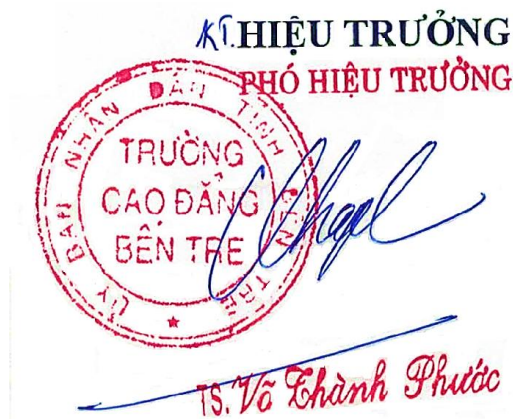 KT.HIỆU TRƯỞNG
PHÓ HIỆU TRƯỞNG
ỦY BAN NHÂN DÂN TỈNH BẾN TRE
TRƯỜNG
CAO ĐẲNG
BẾN TRE
TS. Võ Thành Phước